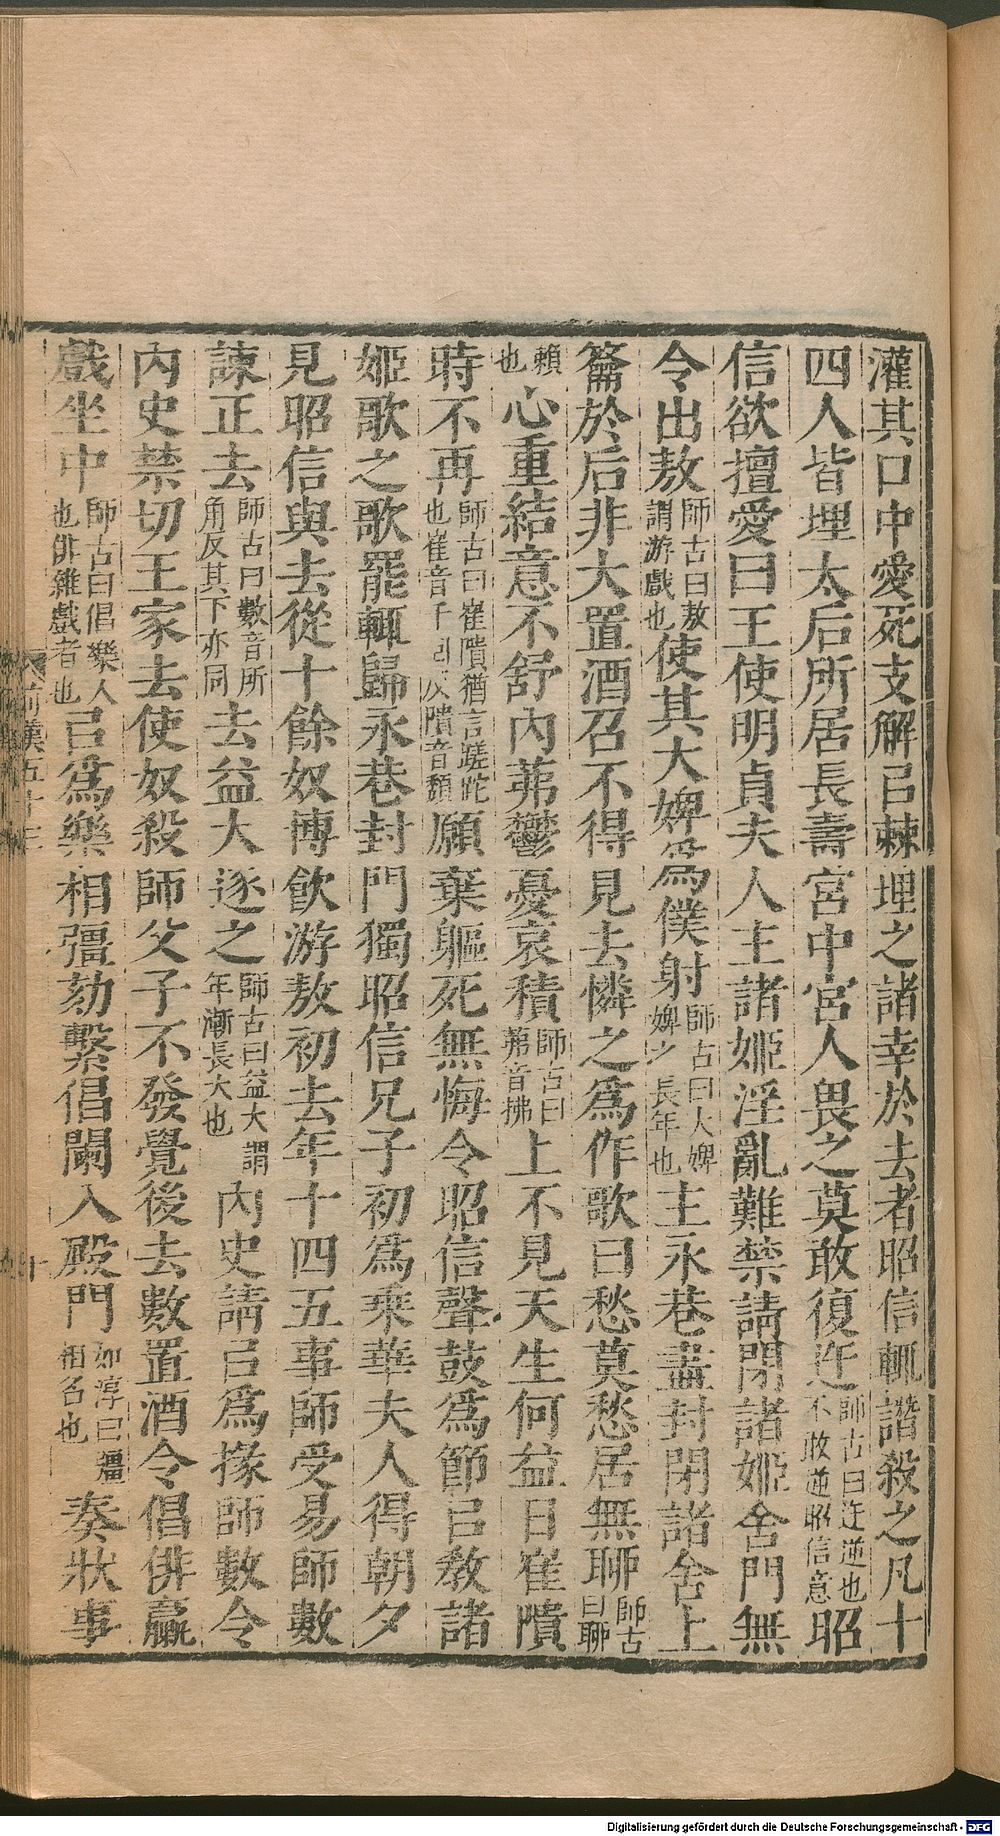 灌其口中愛死支解㠯棘埋之諸幸於去者昭信輒譖殺之凡十
四人皆埋太后所居長壽宮中宮人畏之莫敢復迕師古曰迕逆也不敢逆昭信意昭
信欲擅愛曰王使明貞夫人主諸姬淫亂難禁請閉諸姬舍門無
令出敖師古曰敖謂游戲也使其大婢爲僕射師古曰大婢婢之長年也主永巷盡封閉諸舍上
籥於后非大置酒召不得見去憐之爲作歌曰愁莫愁居無聊師古曰聊
賴也心重結意不舒內茀鬱憂哀積師古曰茀音拂上不見天生何益日崔隤
時不再師古曰崔隤猶言蹉跎也崔音千回反隤音頹願棄軀死無悔令昭信聲鼓爲節㠯教諸
姬歌之歌罷輒歸永巷封門獨昭信兄子初爲乘華夫人得朝夕
見昭信與去從十餘奴博飮游敖初去年十四五事師受易師數
諫正去師古曰數音所角反其下亦同去益大逐之師古曰益大謂年漸長大也內史請㠯爲掾師數令
內史禁切王家去使奴殺師父子不發覺後去數置酒令倡俳臝
戲坐中師古曰倡樂人也俳雜戲者也㠯爲樂相彊劾繫倡闌入殿門如淳曰彊相名也奏狀事
前漢五十三
十
Digitalisierung gefördert durch die Deutsche Forschungsgemeinschaft - DFG